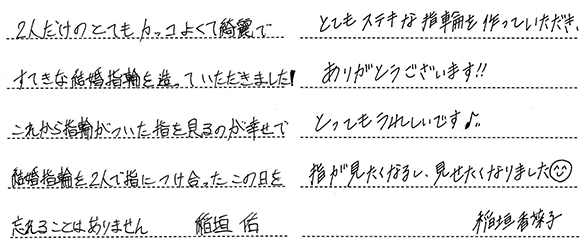 2人だけのとてもカッコよくて綺麗で
すてきな結婚指輪を造っていただきました!
これから指輪がついた指を見るのが幸せで
結婚指輪を2人で指につけ合ったこの日を
忘れることはありません 稲垣 佑
とてもステキな指輪を作っていただき、
ありがとうございます!!
とってもうれしいです♪
指が見たくなるし、見せたくなりました☺
稲垣香菜子